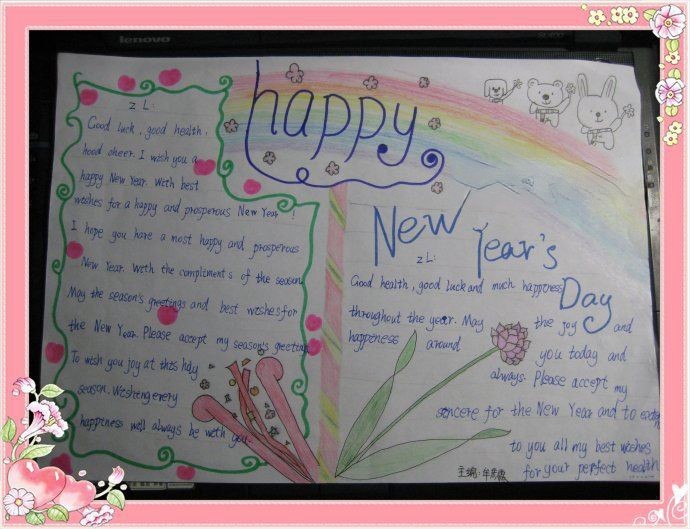 lenovo
happy
New Year's
Day
z L:
Good luck, good health,
hood cheer. I wish you a
happy New Year. With best
wishes for a happy and prosperous New Year!
I hope you have a most happy and prosperous
New Year. With the compliments of the season.
May the season's greetings and best wishes for
the New Year. Please accept my season's greeting
To wish you joy at this hdy
season. Wishing every
happiness will always be with you.
z L:
Good health, good luck and much happiness
throughout the year. May the joy and
happiness around you today and
always. Please accept my
sincere for the New Year and to
to you all my best wishes
for your perfect health
主编:牟